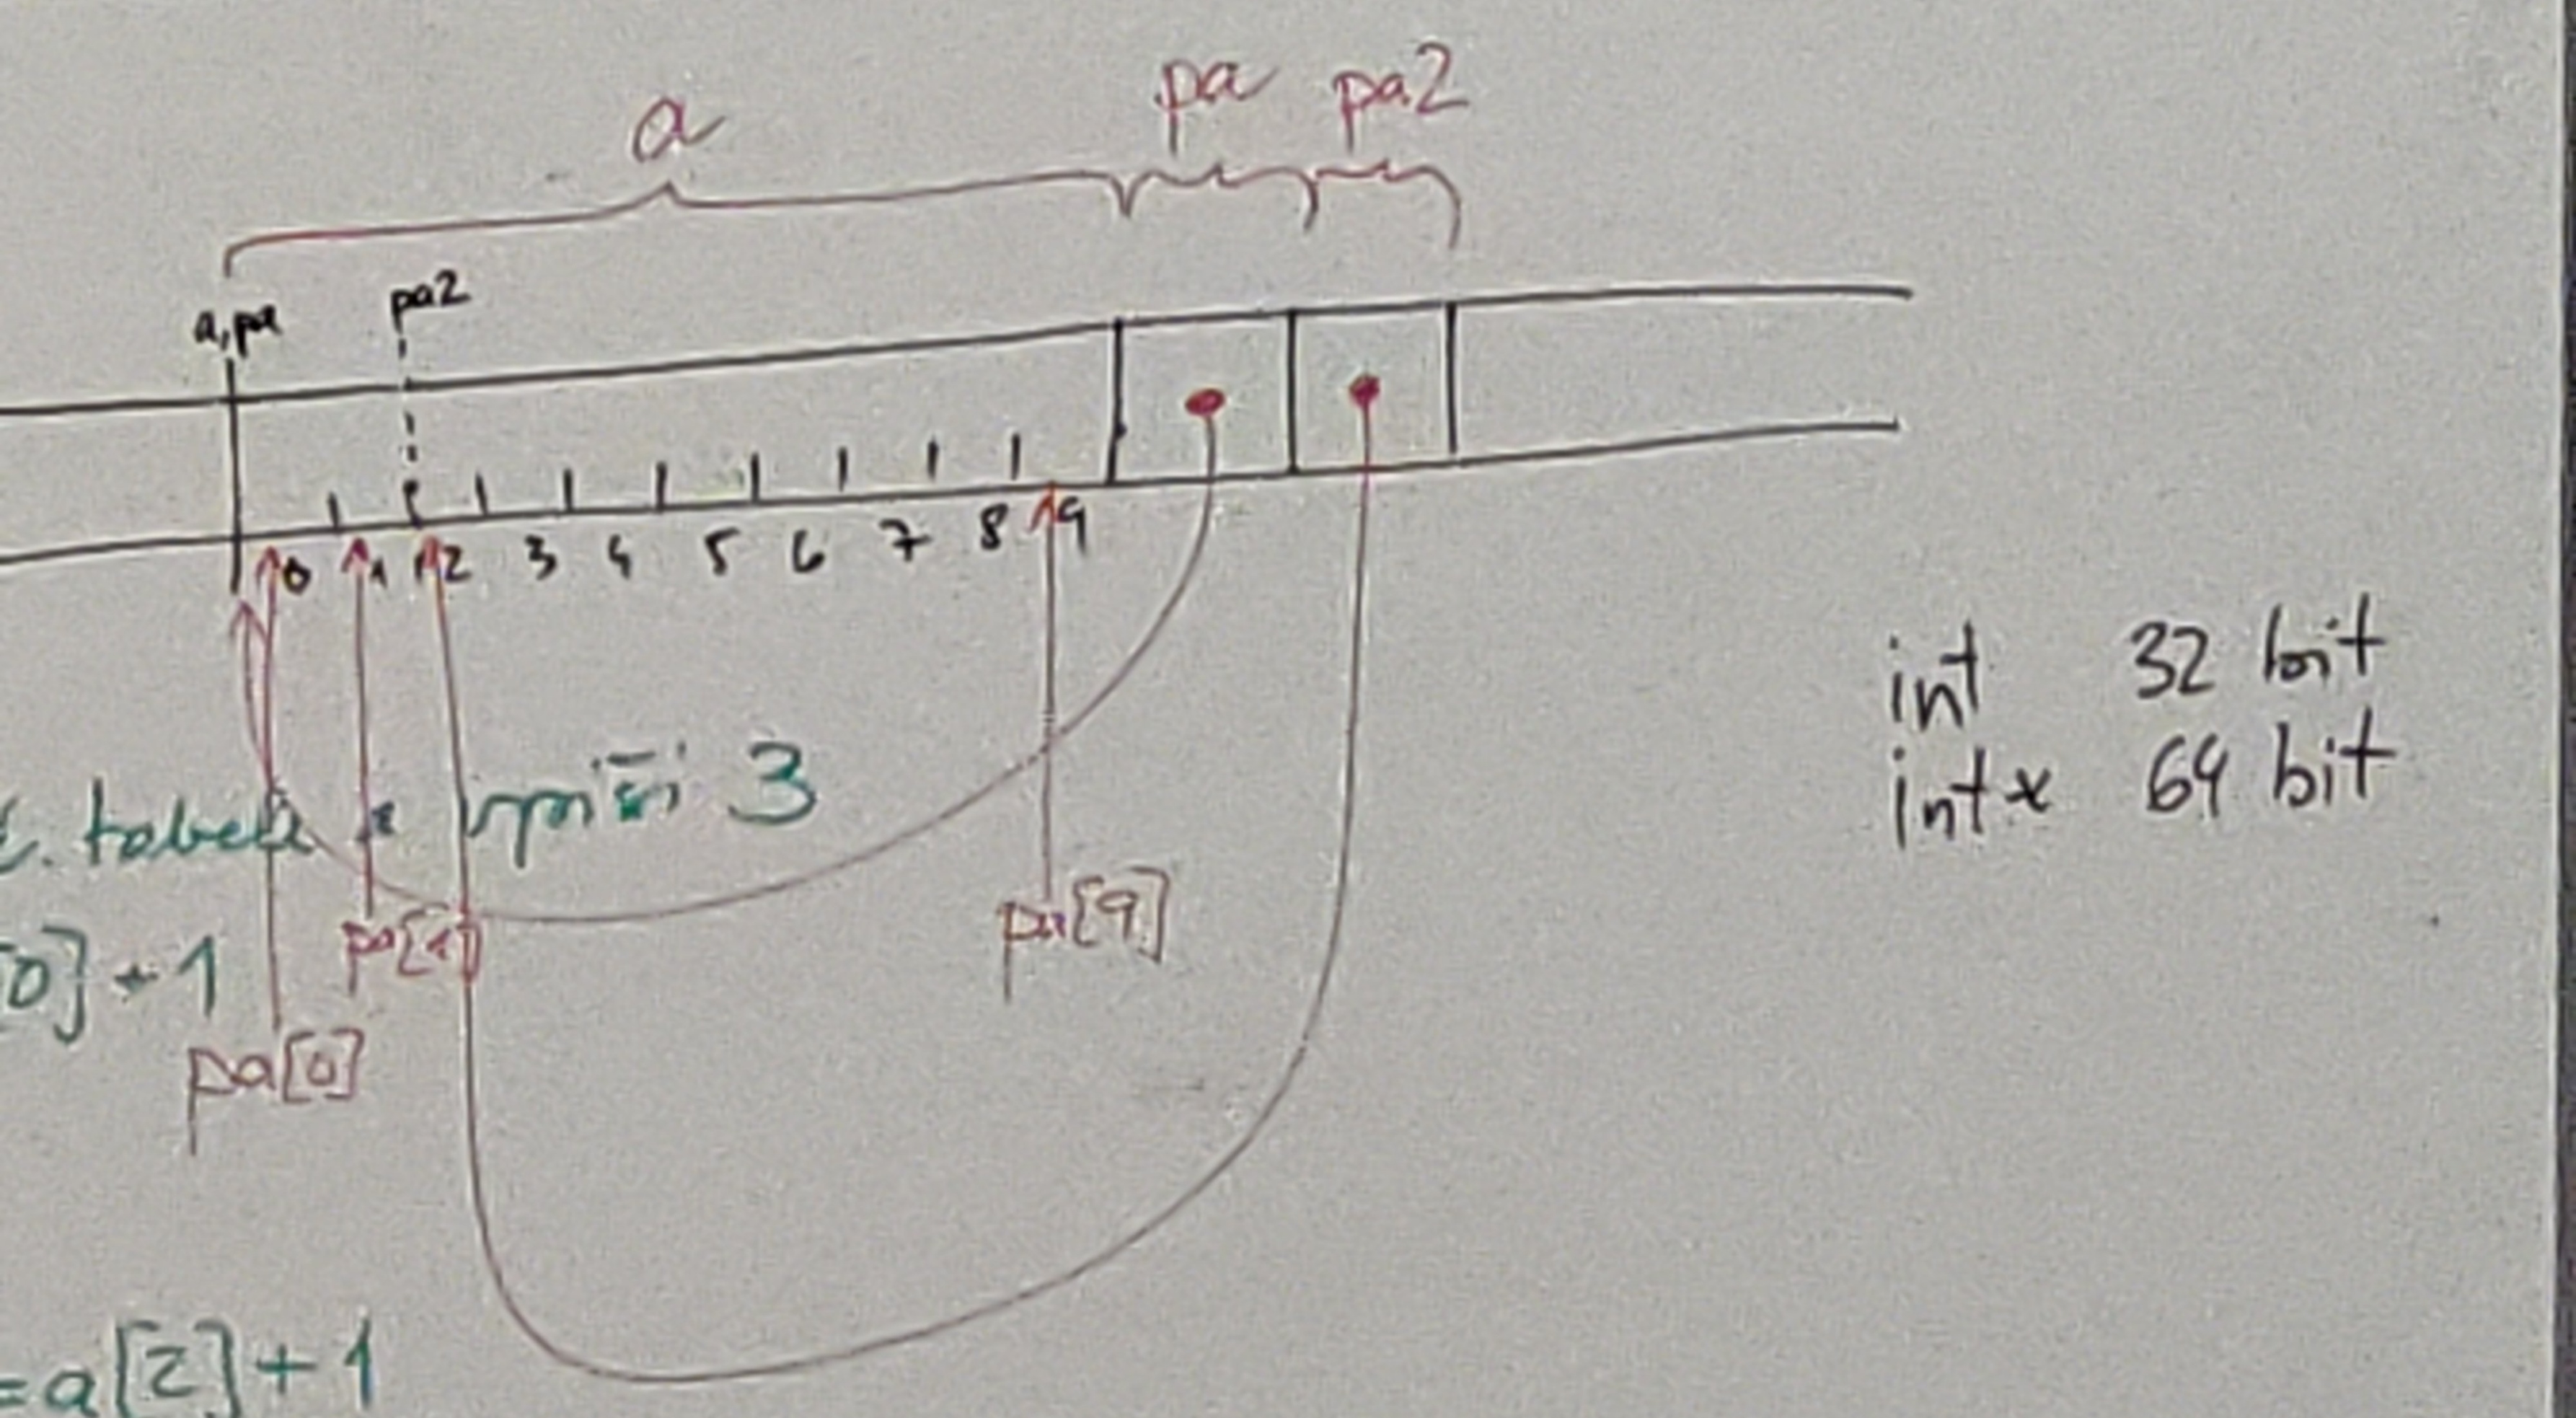 a pa pa2
a,pa pa2
0 1 2 3 4 5 6 7 8 9
int 32 bit
int* 64 bit
vpiši 3
pa[1] pa[9]
[0]+1
pa[0]
=a[2]+1